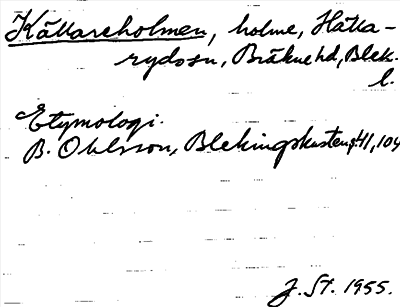 Källareholmen, holme, Hälla-
rydosn, Bräkne hd, Blek.
l.
Etymologi.
B. Ohlsson, Blekingskusten, 41, 104
J. St. 1955.